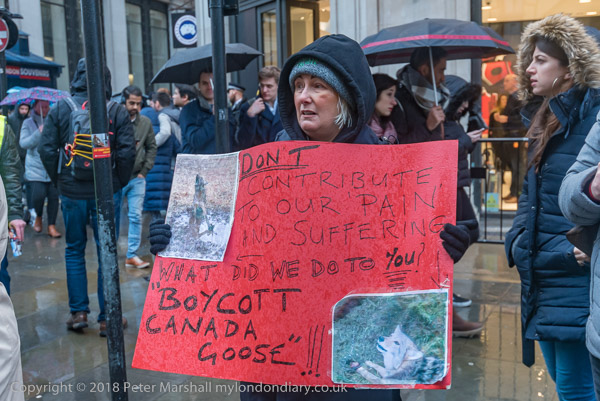 DON'T
CONTRIBUTE
TO OUR 'PAIN'
AND SUFFERING
WHAT DID WE DO TO YOU?
"BOYCOTT
CANADA
GOOSE"!!!
SOUVENIR
Copyright © 2018 Peter Marshall mylondondiary.co.uk